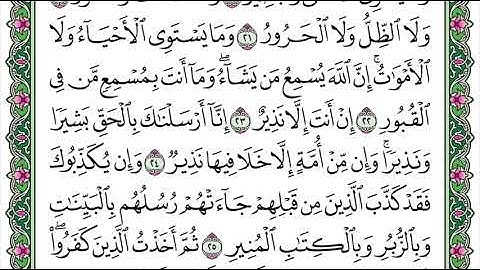 وَلَا ٱلظِّلُّ وَلَا ٱلْحَرُورُ ٢١ وَمَا يَسْتَوِى ٱلْأَحْيَآءُ وَلَا
ٱلْأَمْوَٰتُ ۚ إِنَّ ٱللَّهَ يُسْمِعُ مَن يَشَآءُ ۖ وَمَآ أَنتَ بِمُسْمِعٍ مَّن فِى
ٱلْقُبُورِ ٢٢ إِنْ أَنتَ إِلَّا نَذِيرٌ ٢٣ إِنَّآ أَرْسَلْنَٰكَ بِٱلْحَقِّ بَشِيرًا
وَنَذِيرًا ۚ وَإِن مِّنْ أُمَّةٍ إِلَّا خَلَا فِيهَا نَذِيرٌ ٢٤ وَإِن يُكَذِّبُوكَ
فَقَدْ كَذَّبَ ٱلَّذِينَ مِن قَبْلِهِمْ جَآءَتْهُمْ رُسُلُهُم بِٱلْبَيِّنَٰتِ
وَبِٱلزُّبُرِ وَبِٱلْكِتَٰبِ ٱلْمُنِيرِ ٢٥ ثُمَّ أَخَذْتُ ٱلَّذِينَ كَفَرُوا۟ ۖ